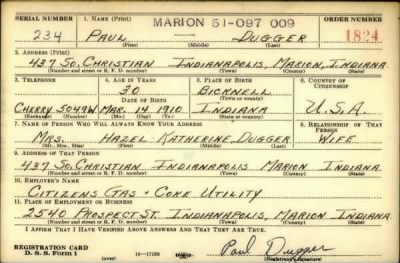 SERIAL NUMBER 1. NAME (Print) MARION 51-097 009 ORDER NUMBER
234 PAUL — DUGGER 1824
(First) (Middle) (Last)
2. ADDRESS (Print)
437 SO. CHRISTIAN INDIANAPOLIS, MARION, INDIANA
(Number and street or R. F. D. number) (Town) (County) (State)
3. TELEPHONE 4. AGE IN YEARS 5. PLACE OF BIRTH 6. COUNTRY OF CITIZENSHIP
30 BICKNELL
DATE OF BIRTH (Town or county)
CHERRY 5049W MAR. 14 1910 INDIANA U.S.A.
(Exchange) (Number) (Mo.) (Day) (Yr.) (State or country)
7. NAME OF PERSON WHO WILL ALWAYS KNOW YOUR ADDRESS 8. RELATIONSHIP OF THAT PERSON
MRS. HAZEL KATHERINE DUGGER WIFE
(Mr., Mrs., Miss) (First) (Middle) (Last)
9. ADDRESS OF THAT PERSON
437 SO. CHRISTIAN INDIANAPOLIS MARION INDIANA
(Number and street or R. F. D. number) (Town) (County) (State)
10. EMPLOYER'S NAME
CITIZENS GAS - COKE UTILITY
11. PLACE OF EMPLOYMENT OR BUSINESS
2540 PROSPECT ST. INDIANAPOLIS, MARION INDIANA
(Number and street or R. F. D. number) (Town) (County) (State)
I AFFIRM THAT I HAVE VERIFIED ABOVE ANSWERS AND THAT THEY ARE TRUE.
REGISTRATION CARD
D. S. S. Form 1 (over) 16—17105 Paul Dugger
(Registrant's signature)